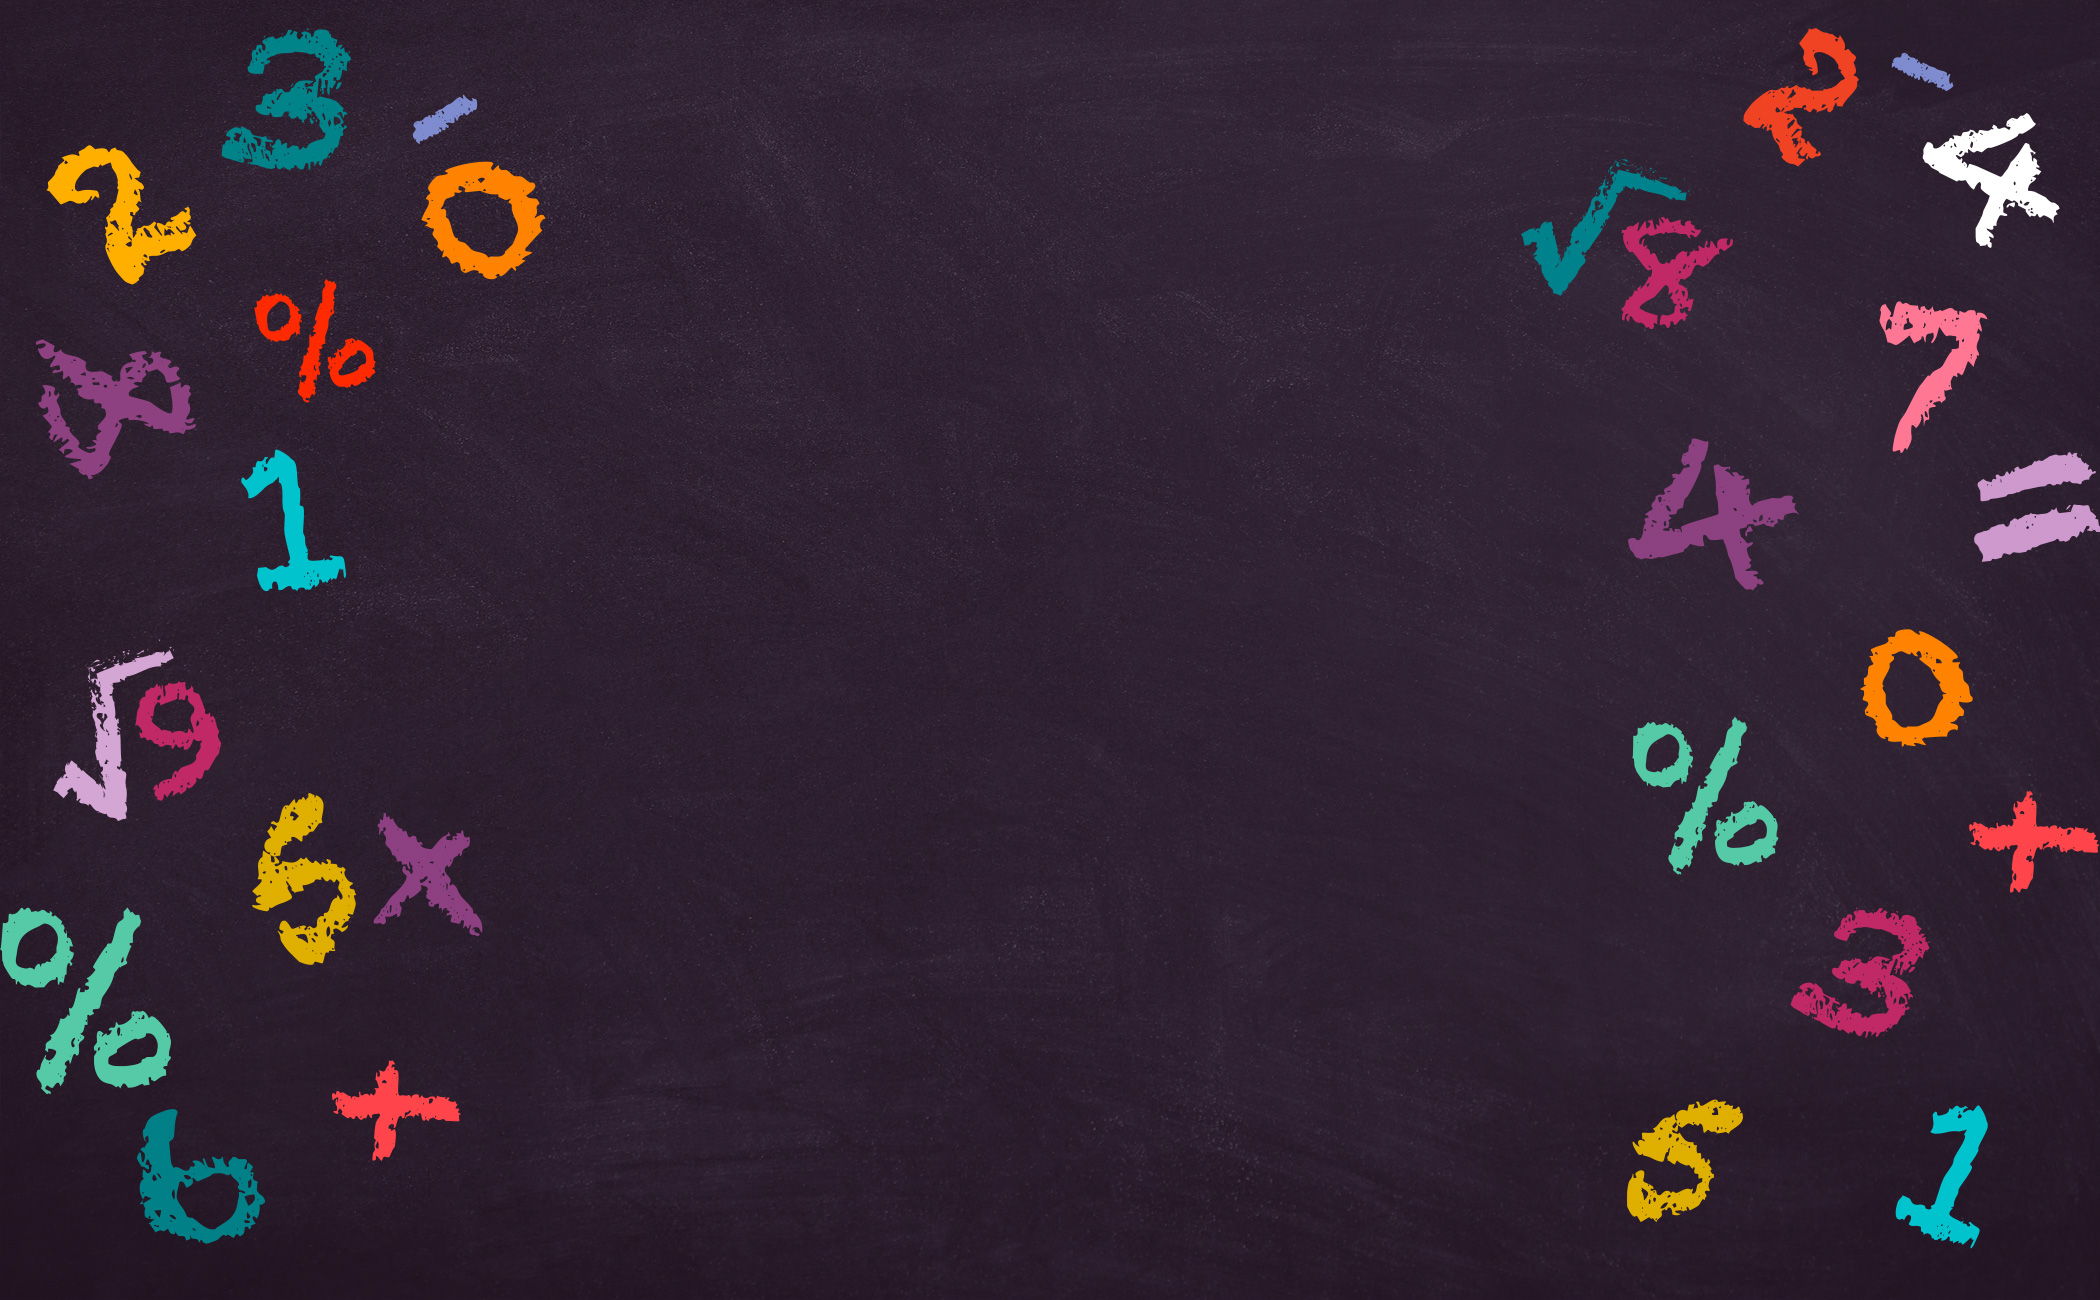 3 -
2 0
%
8
1
√9
5 ×
%
+
6
2 -
4
√8
7
4 =
0
%
+
3
5 1